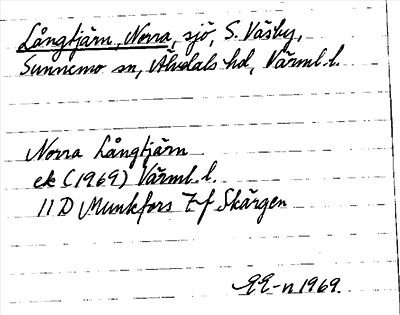 Långtjärn, Norra, sjö, S. Väsby,
Sunnemo sn, Älvdals hd, Värml. l.
Norra Långtjärn
ek (1969) Värml. l.
11 D Munkfors 7 f Skärgen
1969.